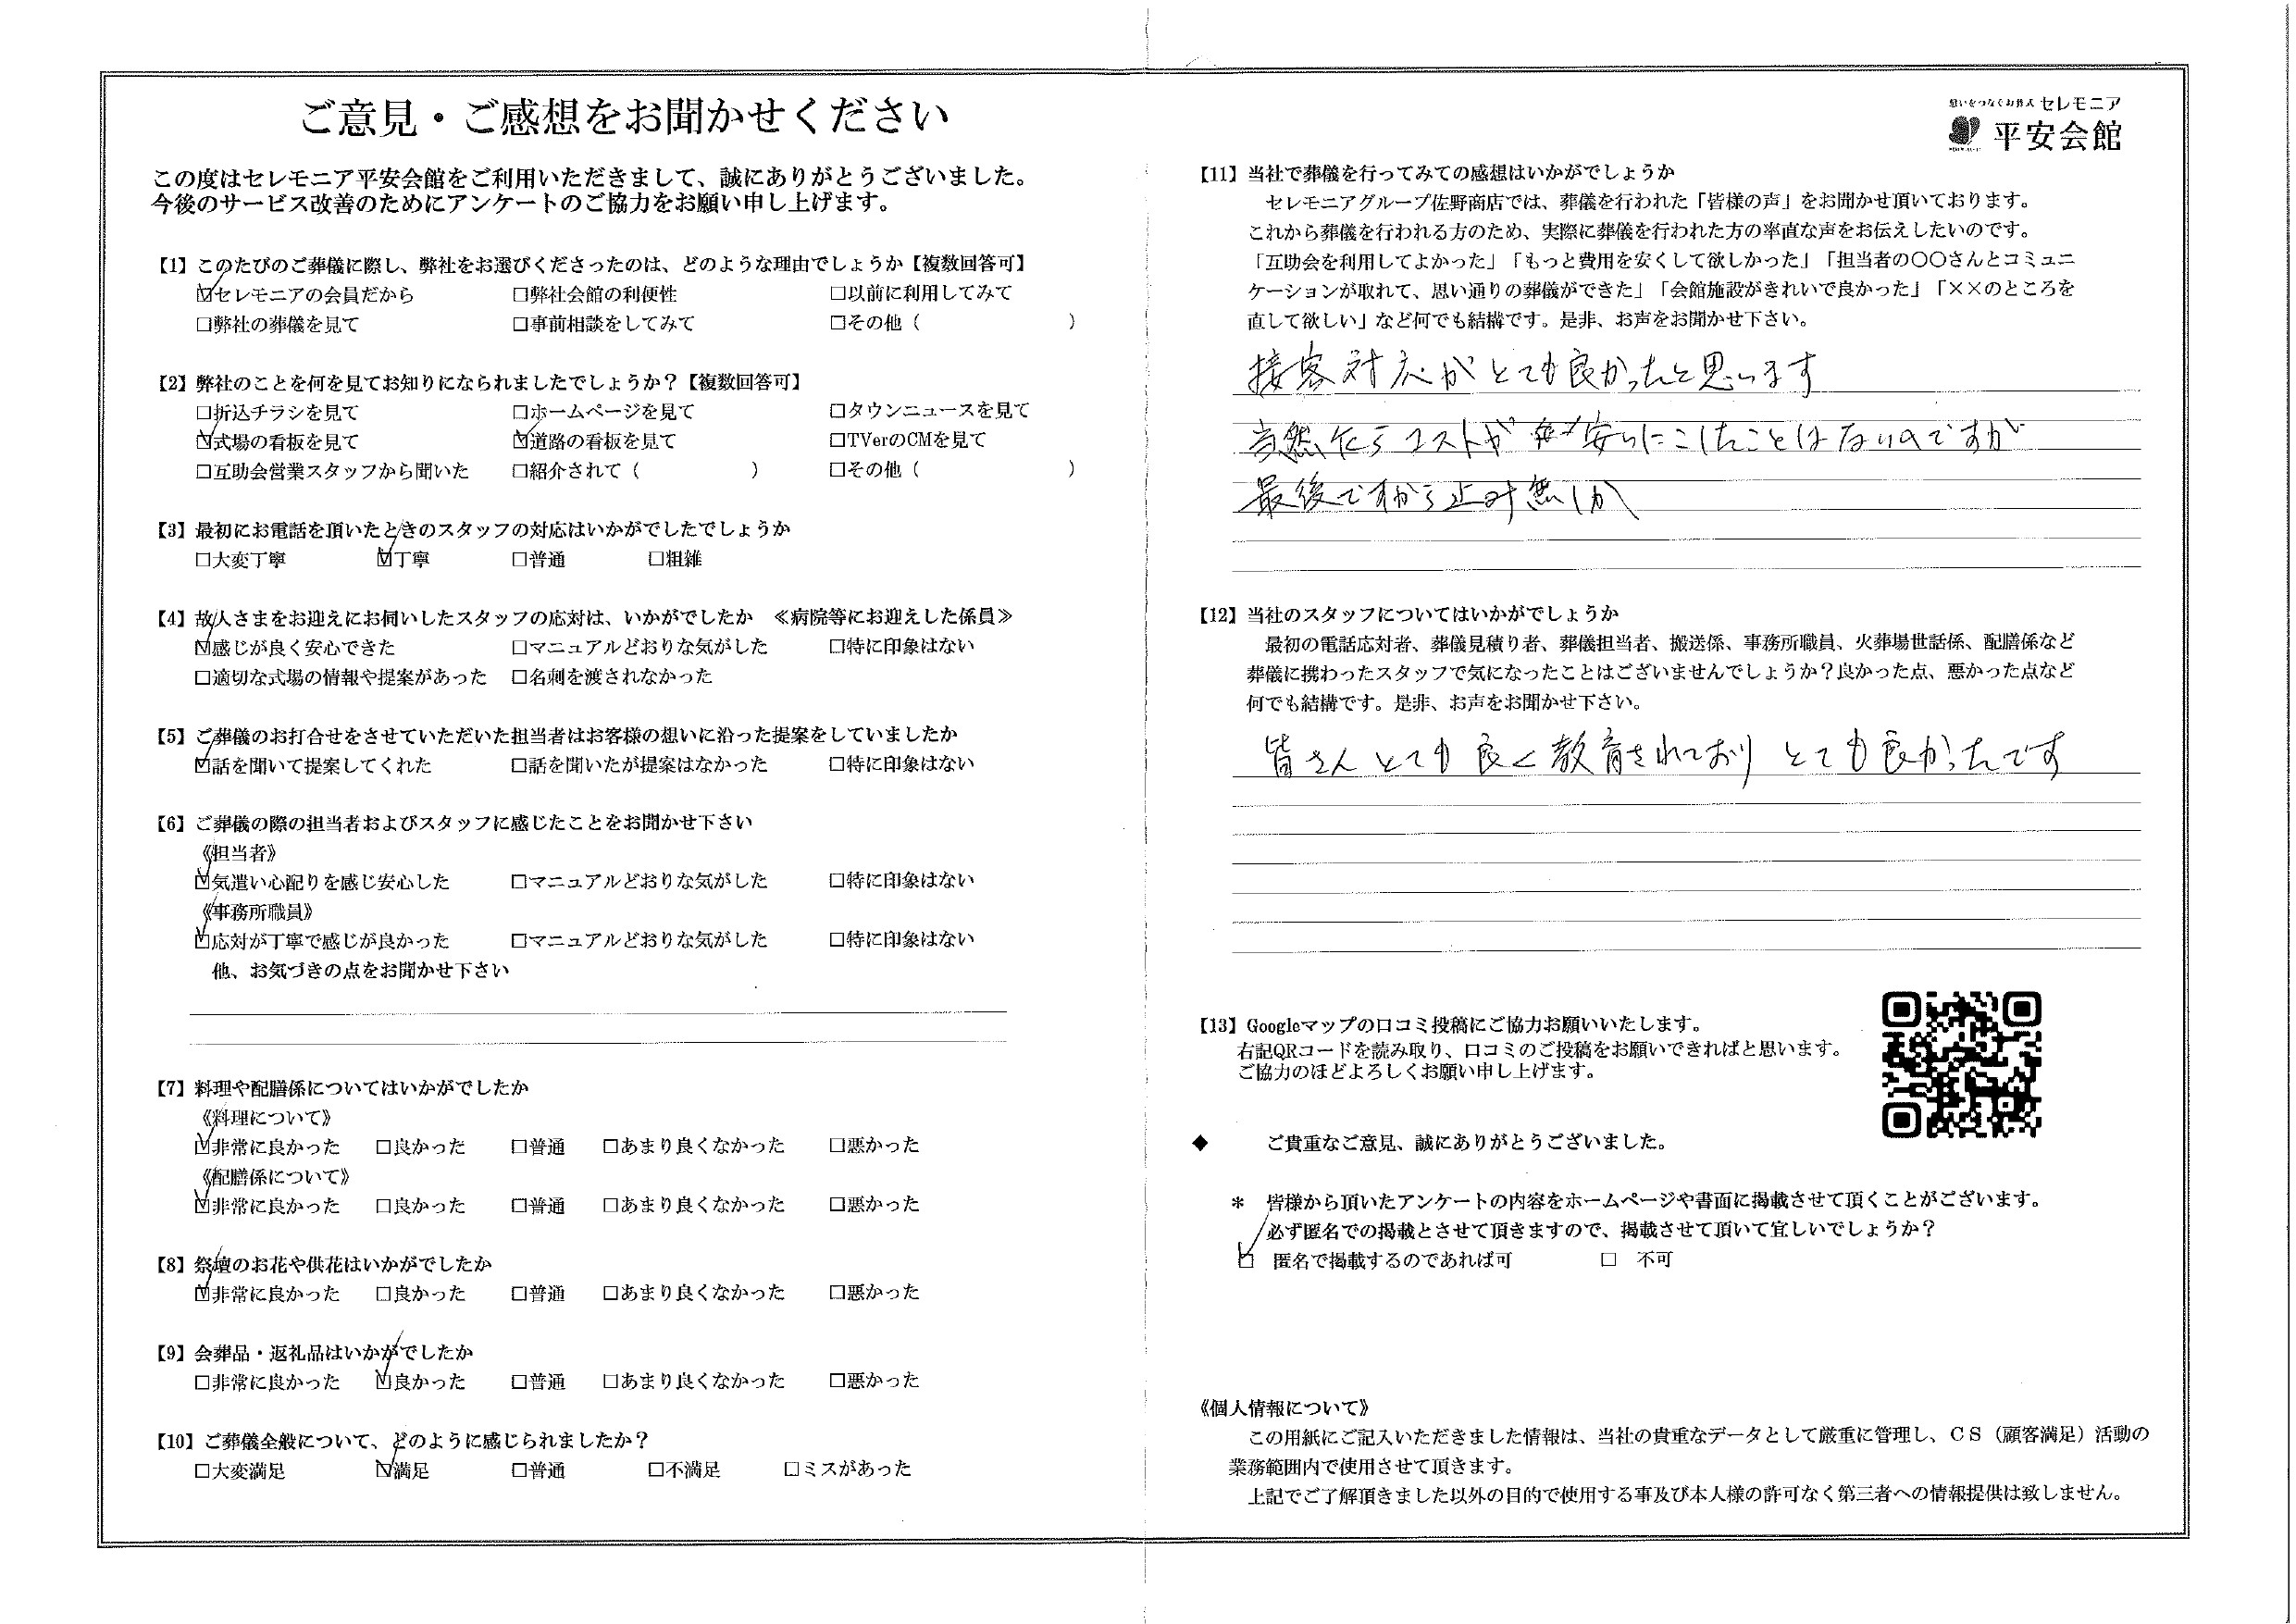 ご意見・ご感想をお聞かせください
この度はセレモニア平安会館をご利用いただきまして、誠にありがとうございました。
今後のサービス改善のためにアンケートのご協力をお願い申し上げます。
【1】このたびのご葬儀に際し、弊社をお選びくださったのは、どのような理由でしょうか【複数回答可】
☑セレモニアの会員だから □弊社会館の利便性 □以前に利用してみて
□弊社の葬儀を見て □事前相談をしてみて □その他（ ）
【2】弊社のことを何を見てお知りになられましたでしょうか？【複数回答可】
□折込チラシを見て □ホームページを見て □タウンニュースを見て
☑式場の看板を見て ☑道路の看板を見て □TVerのCMを見て
□互助会営業スタッフから聞いた □紹介されて（ ） □その他（ ）
【3】最初にお電話を頂いたときのスタッフの対応はいかがでしたでしょうか
□大変丁寧 ☑丁寧 □普通 □粗雑
【4】故人さまをお迎えにお伺いしたスタッフの応対は、いかがでしたか ≪病院等にお迎えした係員≫
☑感じが良く安心できた □マニュアルどおりな気がした □特に印象はない
□適切な式場の情報や提案があった □名刺を渡されなかった
【5】ご葬儀のお打合せをさせていただいた担当者はお客様の想いに沿った提案をしていましたか
☑話を聞いて提案してくれた □話を聞いたが提案はなかった □特に印象はない
【6】ご葬儀の際の担当者およびスタッフに感じたことをお聞かせ下さい
《担当者》
☑気遣い心配りを感じ安心した □マニュアルどおりな気がした □特に印象はない
《事務所職員》
☑応対が丁寧で感じが良かった □マニュアルどおりな気がした □特に印象はない
他、お気づきの点をお聞かせ下さい
【7】料理や配膳係についてはいかがでしたか
《料理について》
☑非常に良かった □良かった □普通 □あまり良くなかった □悪かった
《配膳係について》
☑非常に良かった □良かった □普通 □あまり良くなかった □悪かった
【8】祭壇のお花や供花はいかがでしたか
☑非常に良かった □良かった □普通 □あまり良くなかった □悪かった
【9】会葬品・返礼品はいかがでしたか
□非常に良かった ☑良かった □普通 □あまり良くなかった □悪かった
【10】ご葬儀全般について、どのように感じられましたか？
□大変満足 ☑満足 □普通 □不満足 □ミスがあった
想いをつなぐお葬式 セレモニア
平安会館
【11】当社で葬儀を行ってみての感想はいかがでしょうか
セレモニアグループ佐野商店では、葬儀を行われた「皆様の声」をお聞かせ頂いております。
これから葬儀を行われる方のため、実際に葬儀を行われた方の率直な声をお伝えしたいのです。
「互助会を利用してよかった」「もっと費用を安くして欲しかった」「担当者の〇〇さんとコミュニ
ケーションが取れて、思い通りの葬儀ができた」「会館施設がきれいで良かった」「××のところを
直して欲しい」など何でも結構です。是非、お声をお聞かせ下さい。
接客対応がとても良かったと思います
当然ながらコストが 安いにこしたことはないのですが
最後ですから止む無しか
【12】当社のスタッフについてはいかがでしょうか
最初の電話応対者、葬儀見積り者、葬儀担当者、搬送係、事務所職員、火葬場世話係、配膳係など
葬儀に携わったスタッフで気になったことはございませんでしょうか？良かった点、悪かった点など
何でも結構です。是非、お声をお聞かせ下さい。
皆さんとても良く教育されており とても良かったです
【13】Googleマップの口コミ投稿にご協力お願いいたします。
右記QRコードを読み取り、口コミのご投稿をお願いできればと思います。
ご協力のほどよろしくお願い申し上げます。
◆ ご貴重なご意見、誠にありがとうございました。
＊ 皆様から頂いたアンケートの内容をホームページや書面に掲載させて頂くことがございます。
必ず匿名での掲載とさせて頂きますので、掲載させて頂いて宜しいでしょうか？
☑ 匿名で掲載するのであれば可 □ 不可
《個人情報について》
この用紙にご記入いただきました情報は、当社の貴重なデータとして厳重に管理し、ＣＳ（顧客満足）活動の
業務範囲内で使用させて頂きます。
上記でご了解頂きました以外の目的で使用する事及び本人様の許可なく第三者への情報提供は致しません。